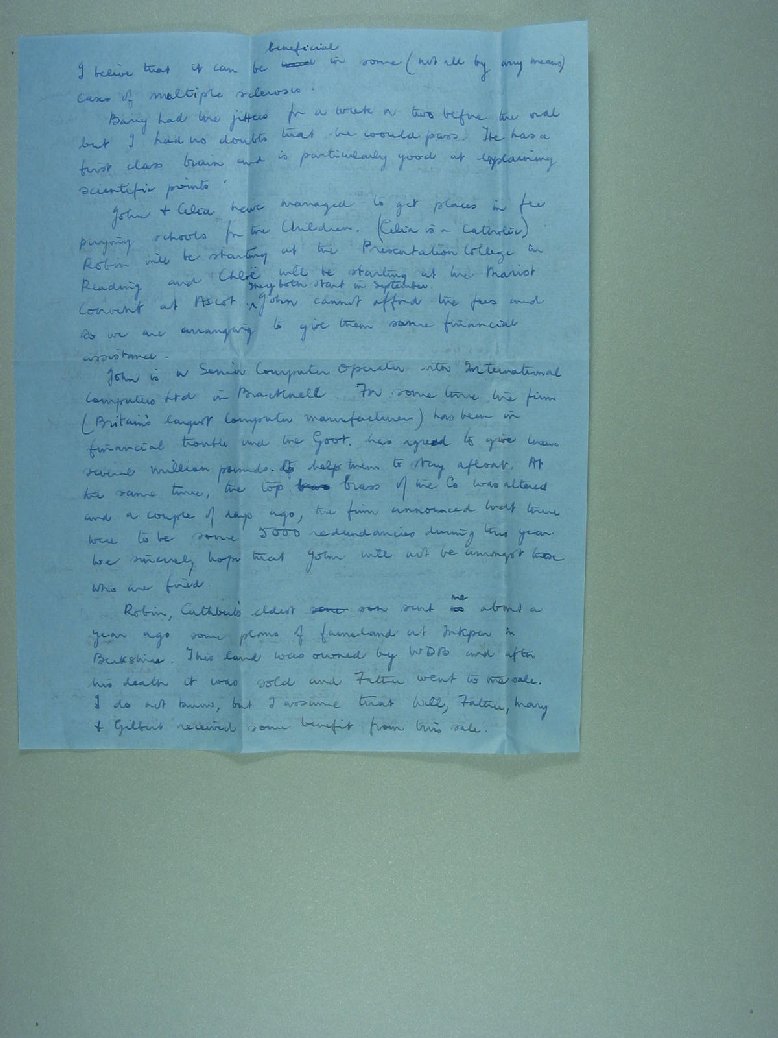 beneficial
I believe that it can be used in some (not all by any means)
cases of multiple sclerosis.
Barry had the jitters for a week or two before the oral
but I had no doubts that he would pass. He has a
first class brain and is particularly good at explaining
scientific points.
John & Celia have managed to get places in fee
paying schools for the Children. (Celia is a Catholic)
Robin will be starting at the Presentation College in
Reading and Chloë will be starting at the Marist
they both start in September
Convent at Ascot. John cannot afford the fees and
so we are arranging to give them some financial
assistance.
John is a Senior Computer Operator with International
Computers Ltd in Bracknell. For some time the firm
(Britain's largest Computer manufacturer) has been in
financial trouble and the Govt. has agreed to give them
several million pounds to help them to stay afloat. At
the same time, the top brass of the Co was altered
and a couple of days ago, the firm announced that there
were to be some 5000 redundancies during this year.
We sincerely hope that John will not be amongst those
who are fired
Robin, Cuthbert's eldest son sent me about a
year ago some plans of farmland at Inkpen in
Berkshire. This land was owned by WDB and after
his death it was sold and Father went to the sale.
I do not know, but I assume that Will, Father, Mary
& Gilbert received some benefit from this sale.